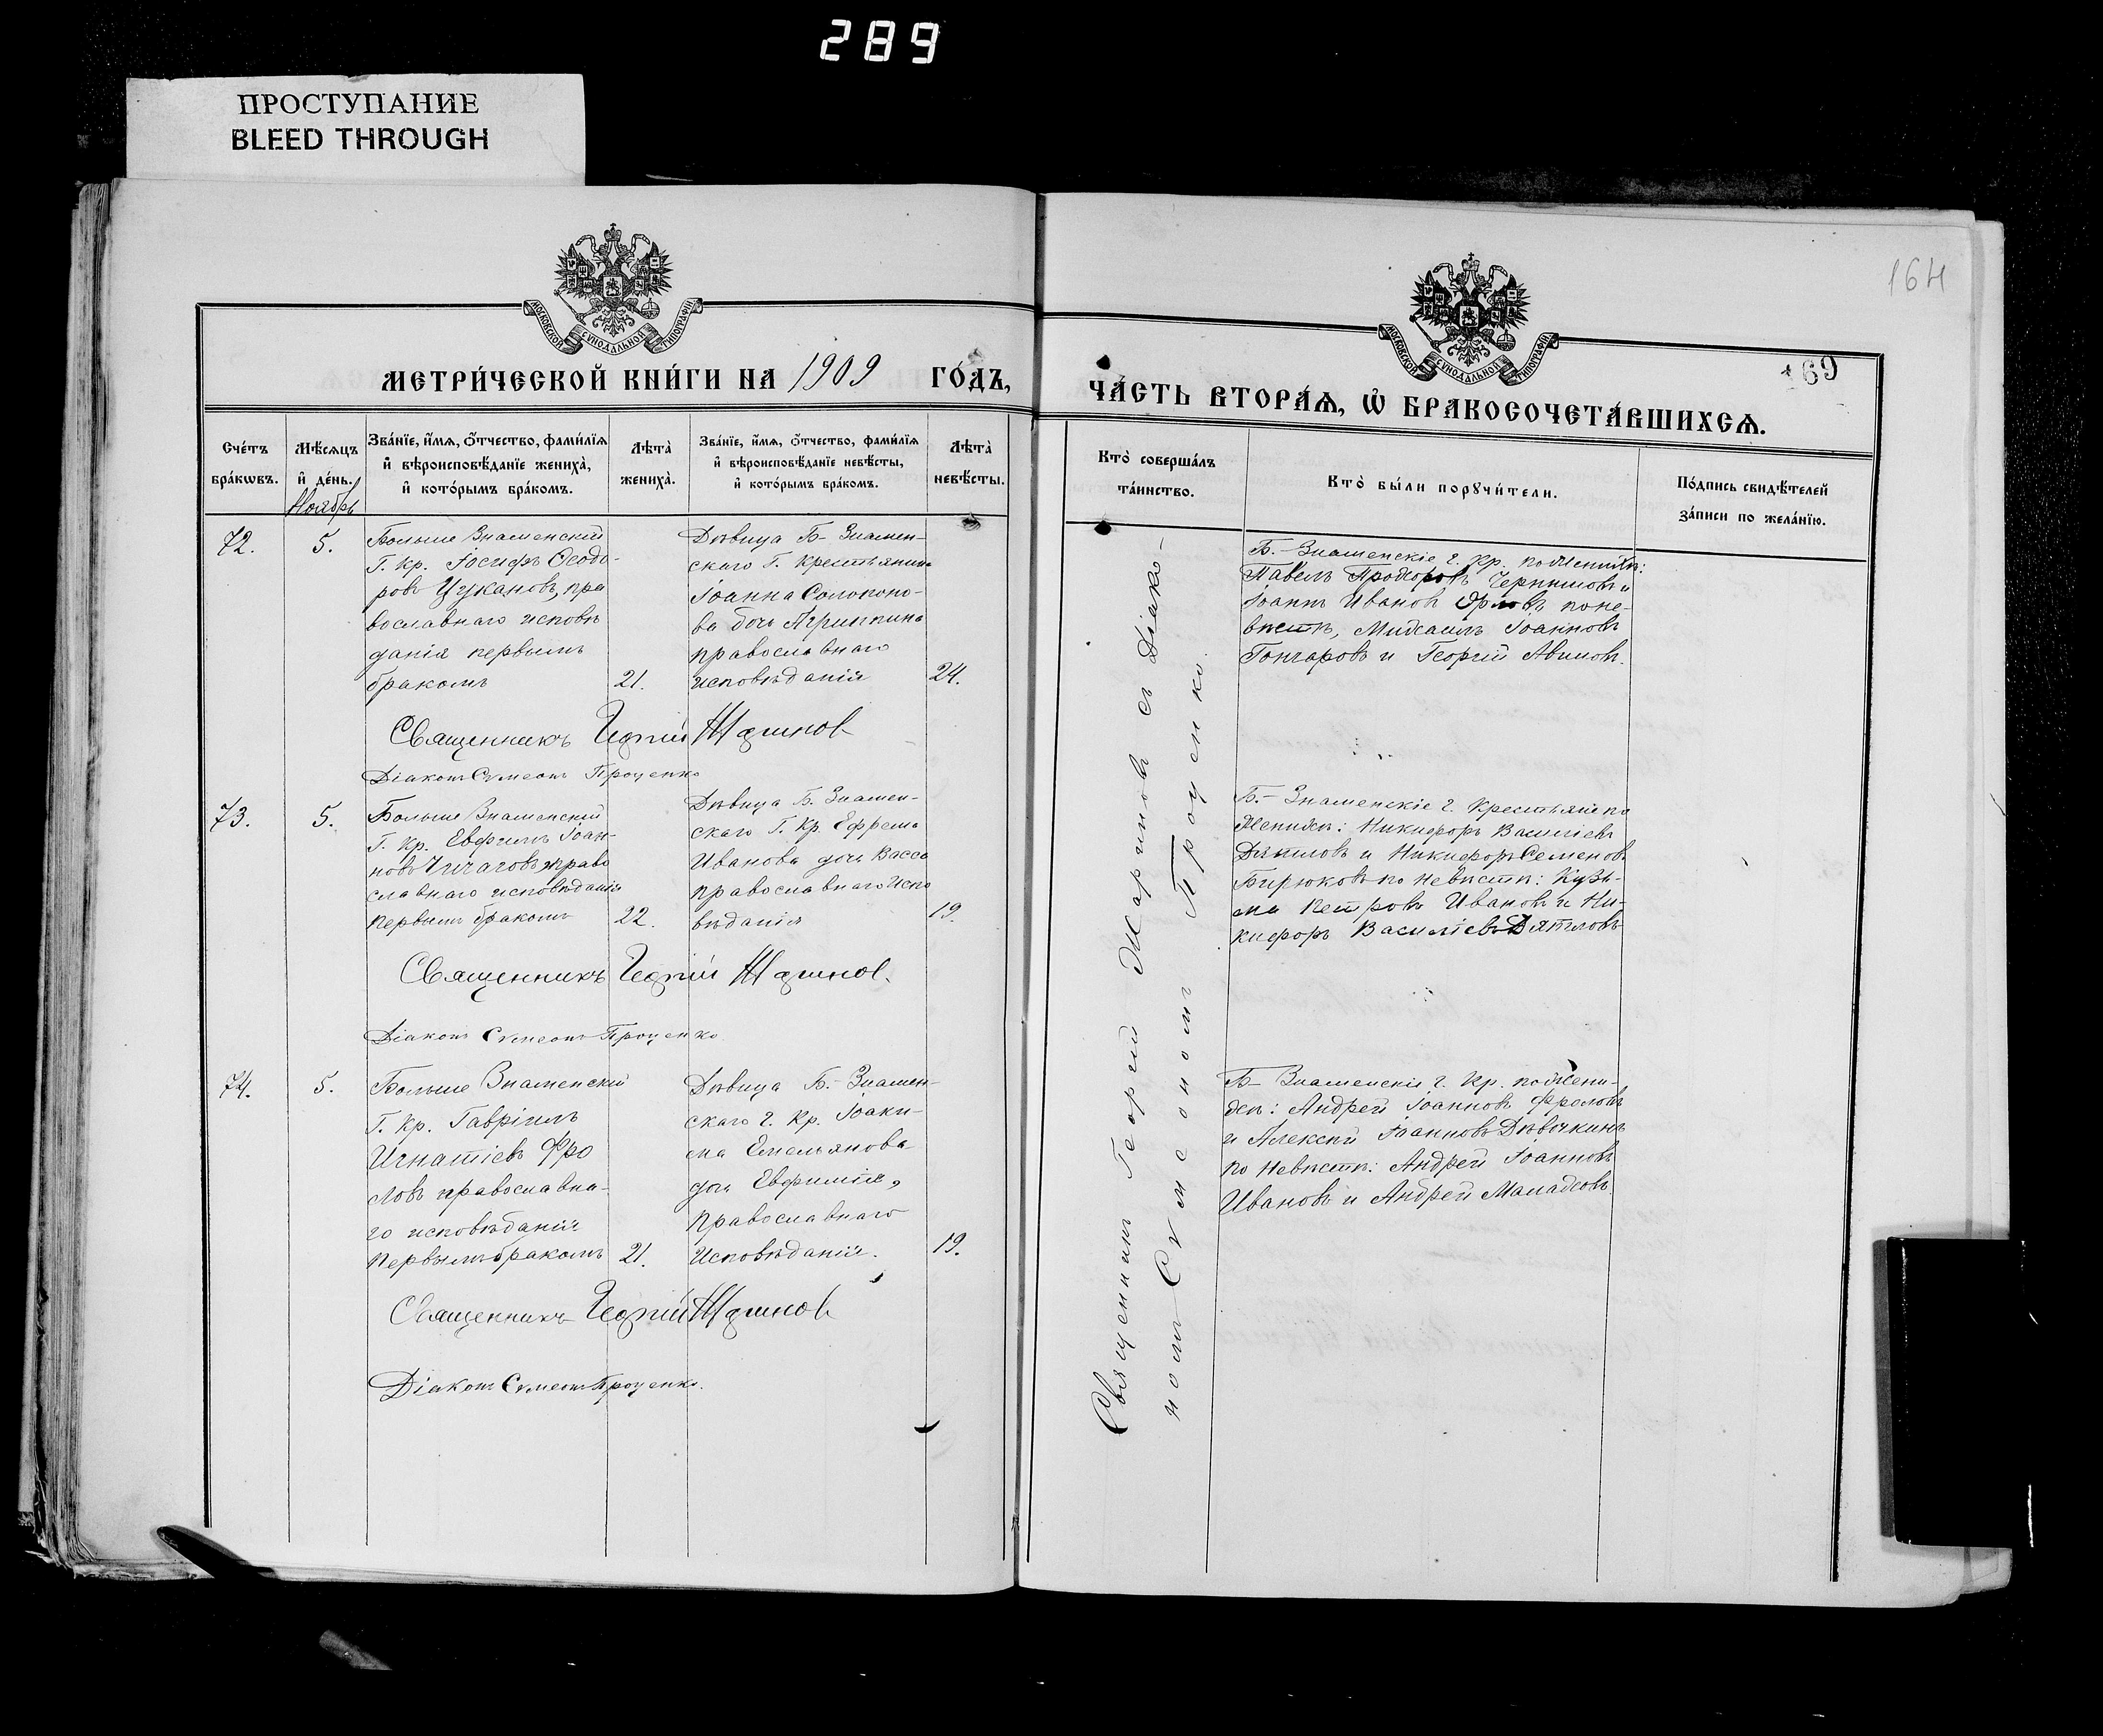 289
ПРОСТУПАНИЕ
BLEED THROUGH
164
169
МОСКОВСКОЙ СѴНОДАЛЬНОЙ ТИПОГРАФІИ
МЕТРИ́ЧЕСКОЙ КНИ́ГИ НА 1909 ГО́ДЪ,
Сче́тъ бра́кѡвъ.
Мѣ́сяцъ и҆ де́нь.
Ноябрь
Зва́нїе, и҆́мѧ, ѻ҆́тчество, фами́лїѧ
и҆ вѣроисповѣ́данїе жениха̀,
и҆ кото́рымъ бра́комъ.
Лѣта̀ жениха̀.
Зва́нїе, и҆́мѧ, ѻ҆́тчество, фами́лїѧ
и҆ вѣроисповѣ́данїе невѣ́сты,
и҆ кото́рымъ бра́комъ.
Лѣта̀ невѣ́сты.
72.
5.
Больше Знаменский
Г. Кр. Іосифъ Ѳеодо-
ровъ Цукановъ, пра
вославнаго исповѣ
данія первымъ
бракомъ
21.
Дѣвица Б- Знамен-
скаго Г. Крестьянина
Іоанна Солопоно-
ва дочь Агриппина
православнаго
исповѣданія
24.
Священникъ Георгій Жариновъ
Діаконъ Сѵмеонъ Проценко
73.
5.
Больше Знаменский
Г. Кр. Евфимъ Іоан-
новъ Чичаговъ право
славнаго исповѣданія
первымъ бракомъ
22.
Дѣвица Б. Знамен-
скаго Г. Кр. Ефрема
Иванова дочь Васса
православнаго Испо
вѣданія
19.
Священникъ Георгій Жариновъ.
Діаконъ Сѵмеонъ Проценко
74.
5.
Больше Знаменский
Г. Кр. Гавріилъ
Игнатіевъ Фро
ловъ православна-
го исповѣданія
первымъ бракомъ
21.
Дѣвица Б.- Знамен-
скаго г. Кр. Іоаки-
ма Емельянова
дочь Евфимія,
Православнаго
Исповѣданія.
19.
Священникъ Георгій Жариновъ
Діаконъ Сѵмеонъ Проценко.
МОСКОВСКОЙ СѴНОДАЛЬНОЙ ТИПОГРАФІИ
ЧА́СТЬ ВТОРА́Ѧ, Ѡ҆ БРАКОСОЧЕТА́ВШИХСѦ.
Кто̀ соверша́лъ
та́инство.
Кто̀ бы́ли порꙋчи́тели.
По́дпись свидѣ́телей
за́писи по жела́нїю.
Священникъ Георгій Жариновъ съ Діако-
номъ Сѵмеономъ Проценко.
Б.- Знаменскіе г. Кр. по Женихѣ:
Павелъ Прохоровъ Чернышовъ и
Іоаннъ Ивановъ Орловъ по не-
вѣстѣ, Михаилъ Іоанновъ
Гончаровъ и Георгій Авиловъ.
Б.- Знаменскіе г. Крестьяне по
Женихѣ: Никифоръ Василіевъ
Даниловъ и Никифоръ Семеновъ
Бирюковъ по невѣстѣ: Кузь-
ма Петровъ Ивановъ и Ни-
кифоръ Василіевъ Дятловъ
Б- Знаменскіе г. Кр. по Жени-
хѣ: Андрей Іоанновъ Фроловъ
и Алексѣй Іоанновъ Дѣвочкинъ
по Невѣстѣ: Андрей Іоанновъ
Ивановъ и Андрей Малаховъ.